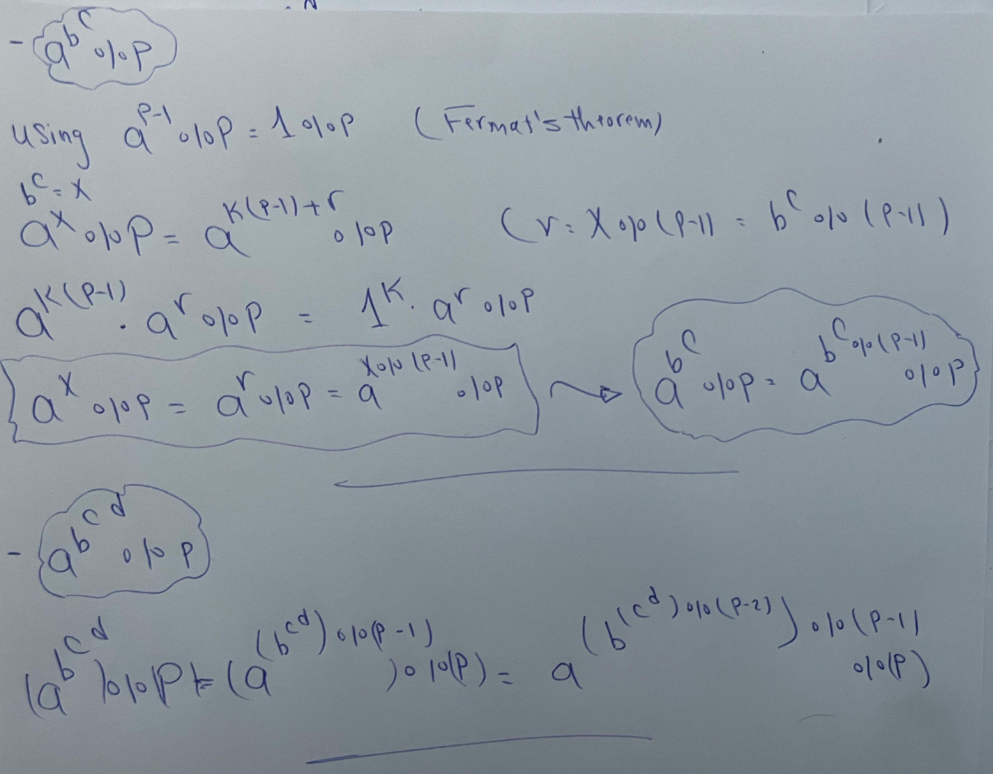 - a^b^c % p
Using a^p-1 % p = 1 % p (Fermat's theorem)
b^c = x
a^x % p = a^k(p-1)+r % p (r = x % (p-1) = b^c % (p-1))
a^k(p-1) . a^r % p = 1^k . a^r % p
a^x % p = a^r % p = a^x % (p-1) % p → a^b^c % p = a^b^c % (p-1) % p
- a^b^c^d % p
(a^b^c^d) % p = (a^(b^c^d) % (p-1)) % (p) = a^(b^(c^d) % (p-2)) % (p-1) % (p)